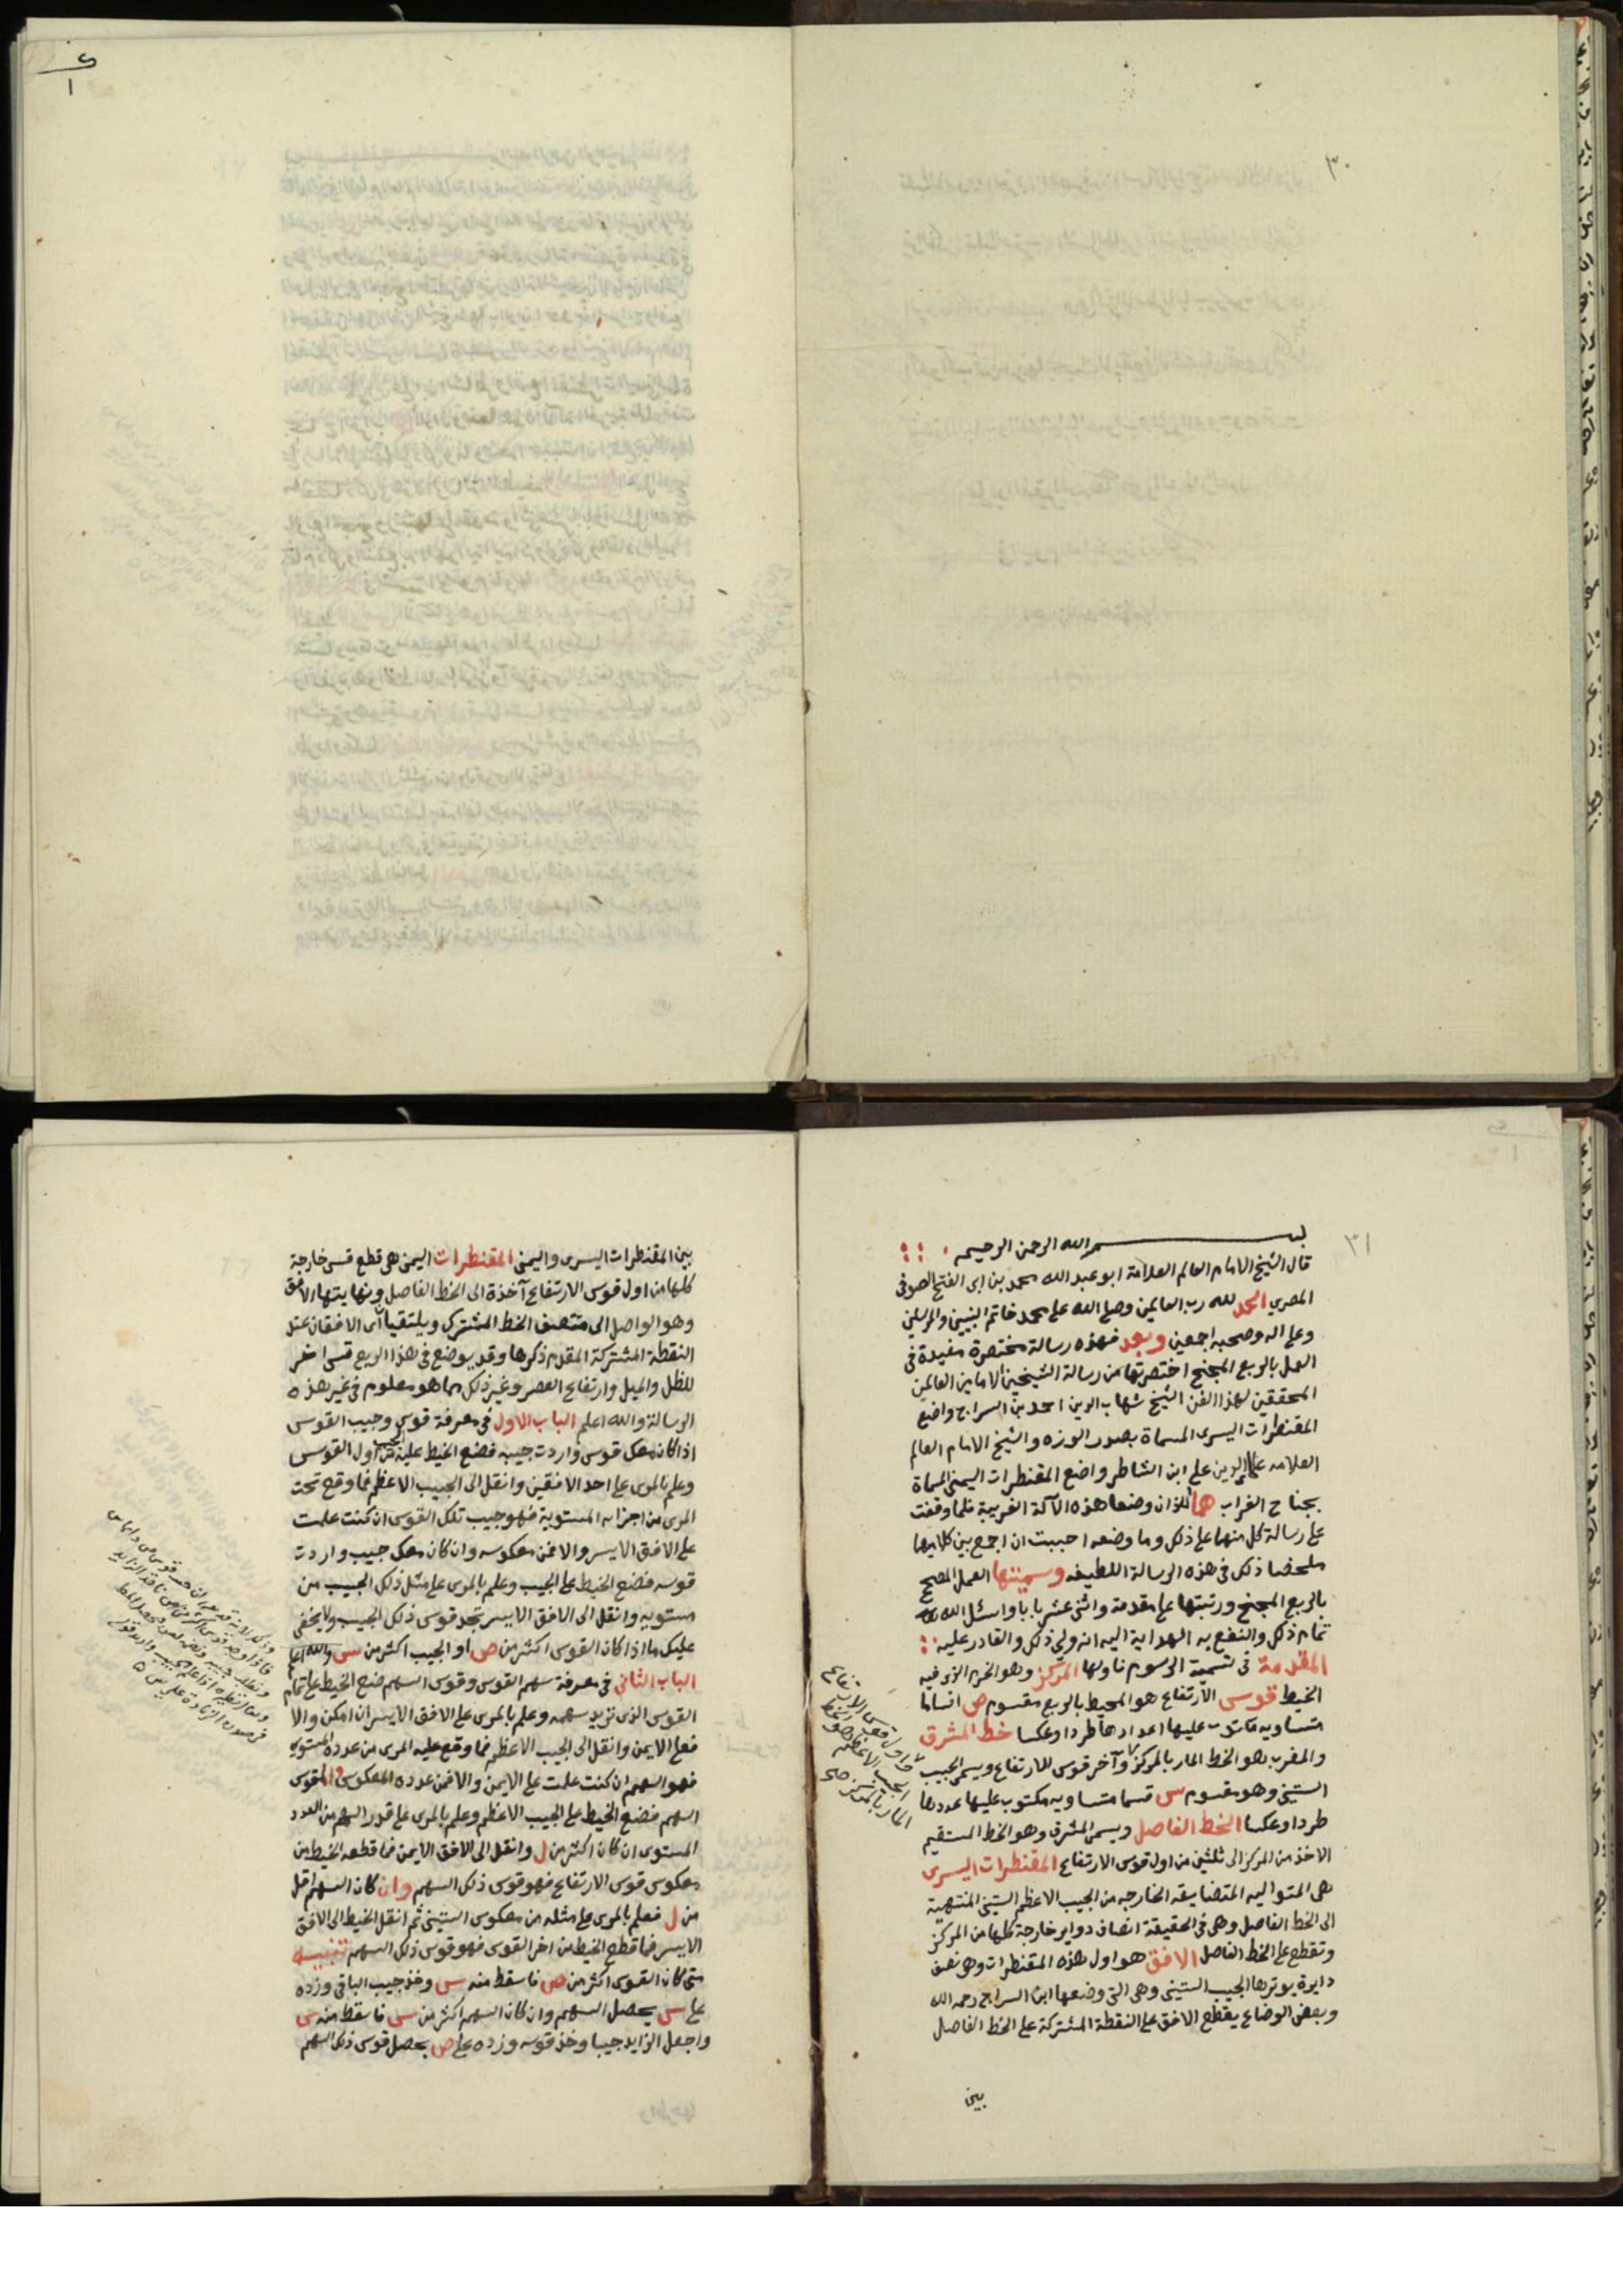 ٣٠
٣١
بسم الله الرحمن الرحيم
قال الشيخ الامام العالم العلامة ابو عبد الله محمد بن ابى الفتح الصوفى
المصري الحمد لله رب العالمين وصلى الله على محمد خاتم النبيين والمرسلين
وعلى اله وصحبه اجمعين وبعد فهذه رسالة مختصرة مفيدة فى
العمل بالربع المجنح اختصرتها من رسالة الشيخين الامامين العالمين
المحققين لهذا الفن الشيخ شهاب الدين احمد بن السراج واضع
المقنطرات اليسرى المسماة بصدر الوزه والشيخ الامام العالم
العلامه علاالدين على ابن الشاطر واضع المقنطرات اليمنى المسماة
بجناح الغراب هما اللذان وضعا هذه الآلة الغريبة فلما وقفت
على رسالة كل منهما على ذلك وما وضعه احببت ان اجمع بين كلاميهما
ملخصا ذلك فى هذه الرسالة اللطيفه وسميتها العمل المصحح
بالربع المجنح ورتبتها على مقدمة واثنى عشر بابا واسئل الله
تمام ذلك والنفع به الهداية اليه انه ولي ذلك والقادر عليه
المقدمة فى تسمية الرسوم فاولها المركز وهو الخرم الذى فيه
الخيط قوس الارتفاع هو المحيط بالربع مقسوم ص اقساما
متساويه مكتوب عليها اعدادها طردا وعكسا خط المشرق
والمغرب هو الخط المار بالمركز وآخر قوس للارتفاع ويسمى الجيب
الستينى وهو مقسوم س قسما متساويه مكتوب عليها عددها
طردا وعكسا الخط الفاصل ويسمى المشرق وهو الخط المستقيم
الاخذ من المركز الى ثلثين من اول قوس الارتفاع المقنطرات اليسرى
هى المتواليه المتضايقه الخارجه من الجيب الاعظم الستينى المنتهية
الى الخط الفاصل وهى فى الحقيقة انصاف دواير خارجة كلها من المركز
وتقطع على الخط الفاصل الافق هو اول هذه المقنطرات وهى نصف
دايرة يوترها الجيب الستينى وهى التى وضعها ابن السراج رحمه الله
وبعض الوضاع يقطع الافق على النقطة المشتركة على الخط الفاصل
بين
بين المقنطرات اليسرى واليمنى المقنطرات اليمنى هى قطع قسى خارجة
كلها من اول قوس الارتفاع آخذة الى الخط الفاصل ونهايتها الافق
وهو الواصل الى منتصف الخط المشترك ويلتقيا اى الافقان عند
النقطة المشتركة المقدم ذكرها وقد يوضع فى هذا الربع قسى اخر
للظل والميل وارتفاع العصر وغير ذلك مما هو معلوم فى غير هذه
الرسالة والله اعلم الباب الاول فى معرفة قوس وجيب القوس
اذا كان معك قوس واردت جيبه فضع الخيط عليه من اول القوس
وعلم بالمرى على احد الافقين وانقل الى الجيب الاعظم فما وقع تحت
المرى من اجزايه المستوية فهو جيب تلك القوس ان كنت علمت
على الافق الايسر والا فمن معكوسه وان كان معك جيب واردت
قوسه فضع الخيط على الجيب وعلم بالمرى على مثل ذلك الجيب من
مستويه وانقل الى الافق الايسر تجد قوس ذلك الجيب ولا يخفى
عليك ما اذا كان القوس اكثر من ص او الجيب اكثر من س والله اعلم
الباب الثانى فى معرفة سهم القوس وقوس السهم ضع الخيط على تمام
القوس الذى تريد سهمه وعلم بالمرى على الافق الايسر ان امكن والا
فعلى الايمن وانقل الى الجيب الاعظم فما وقع عليه المرى من عدده المستوى
فهو السهم ان كنت علمت على الايمن والا فمن عدده المعكوس والقوس
السهم فضع الخيط على الجيب الاعظم وعلم بالمرى على قدر السهم من العدد
المستوى ان كان اكثر من ل وانقل الى الافق الايمن فما قطعه الخيط من
معكوس قوس الارتفاع فهو قوس ذلك السهم وان كان السهم اقل
من ل فعلم بالمرى على مثله من معكوس الستينى ثم انقل الخيط الى الافق
الايسر فما قطع الخيط من اخر القوس فهو قوس ذلك السهم تنبيه
متى كان القوس اكثر من ص فاسقط منه س وخذ جيب الباقى وزده
على س يحصل السهم وان كان السهم اكثر من س فاسقط منه س
واجعل الزايد جيبا وخذ قوسه وزده على ص يحصل قوس ذلك السهم